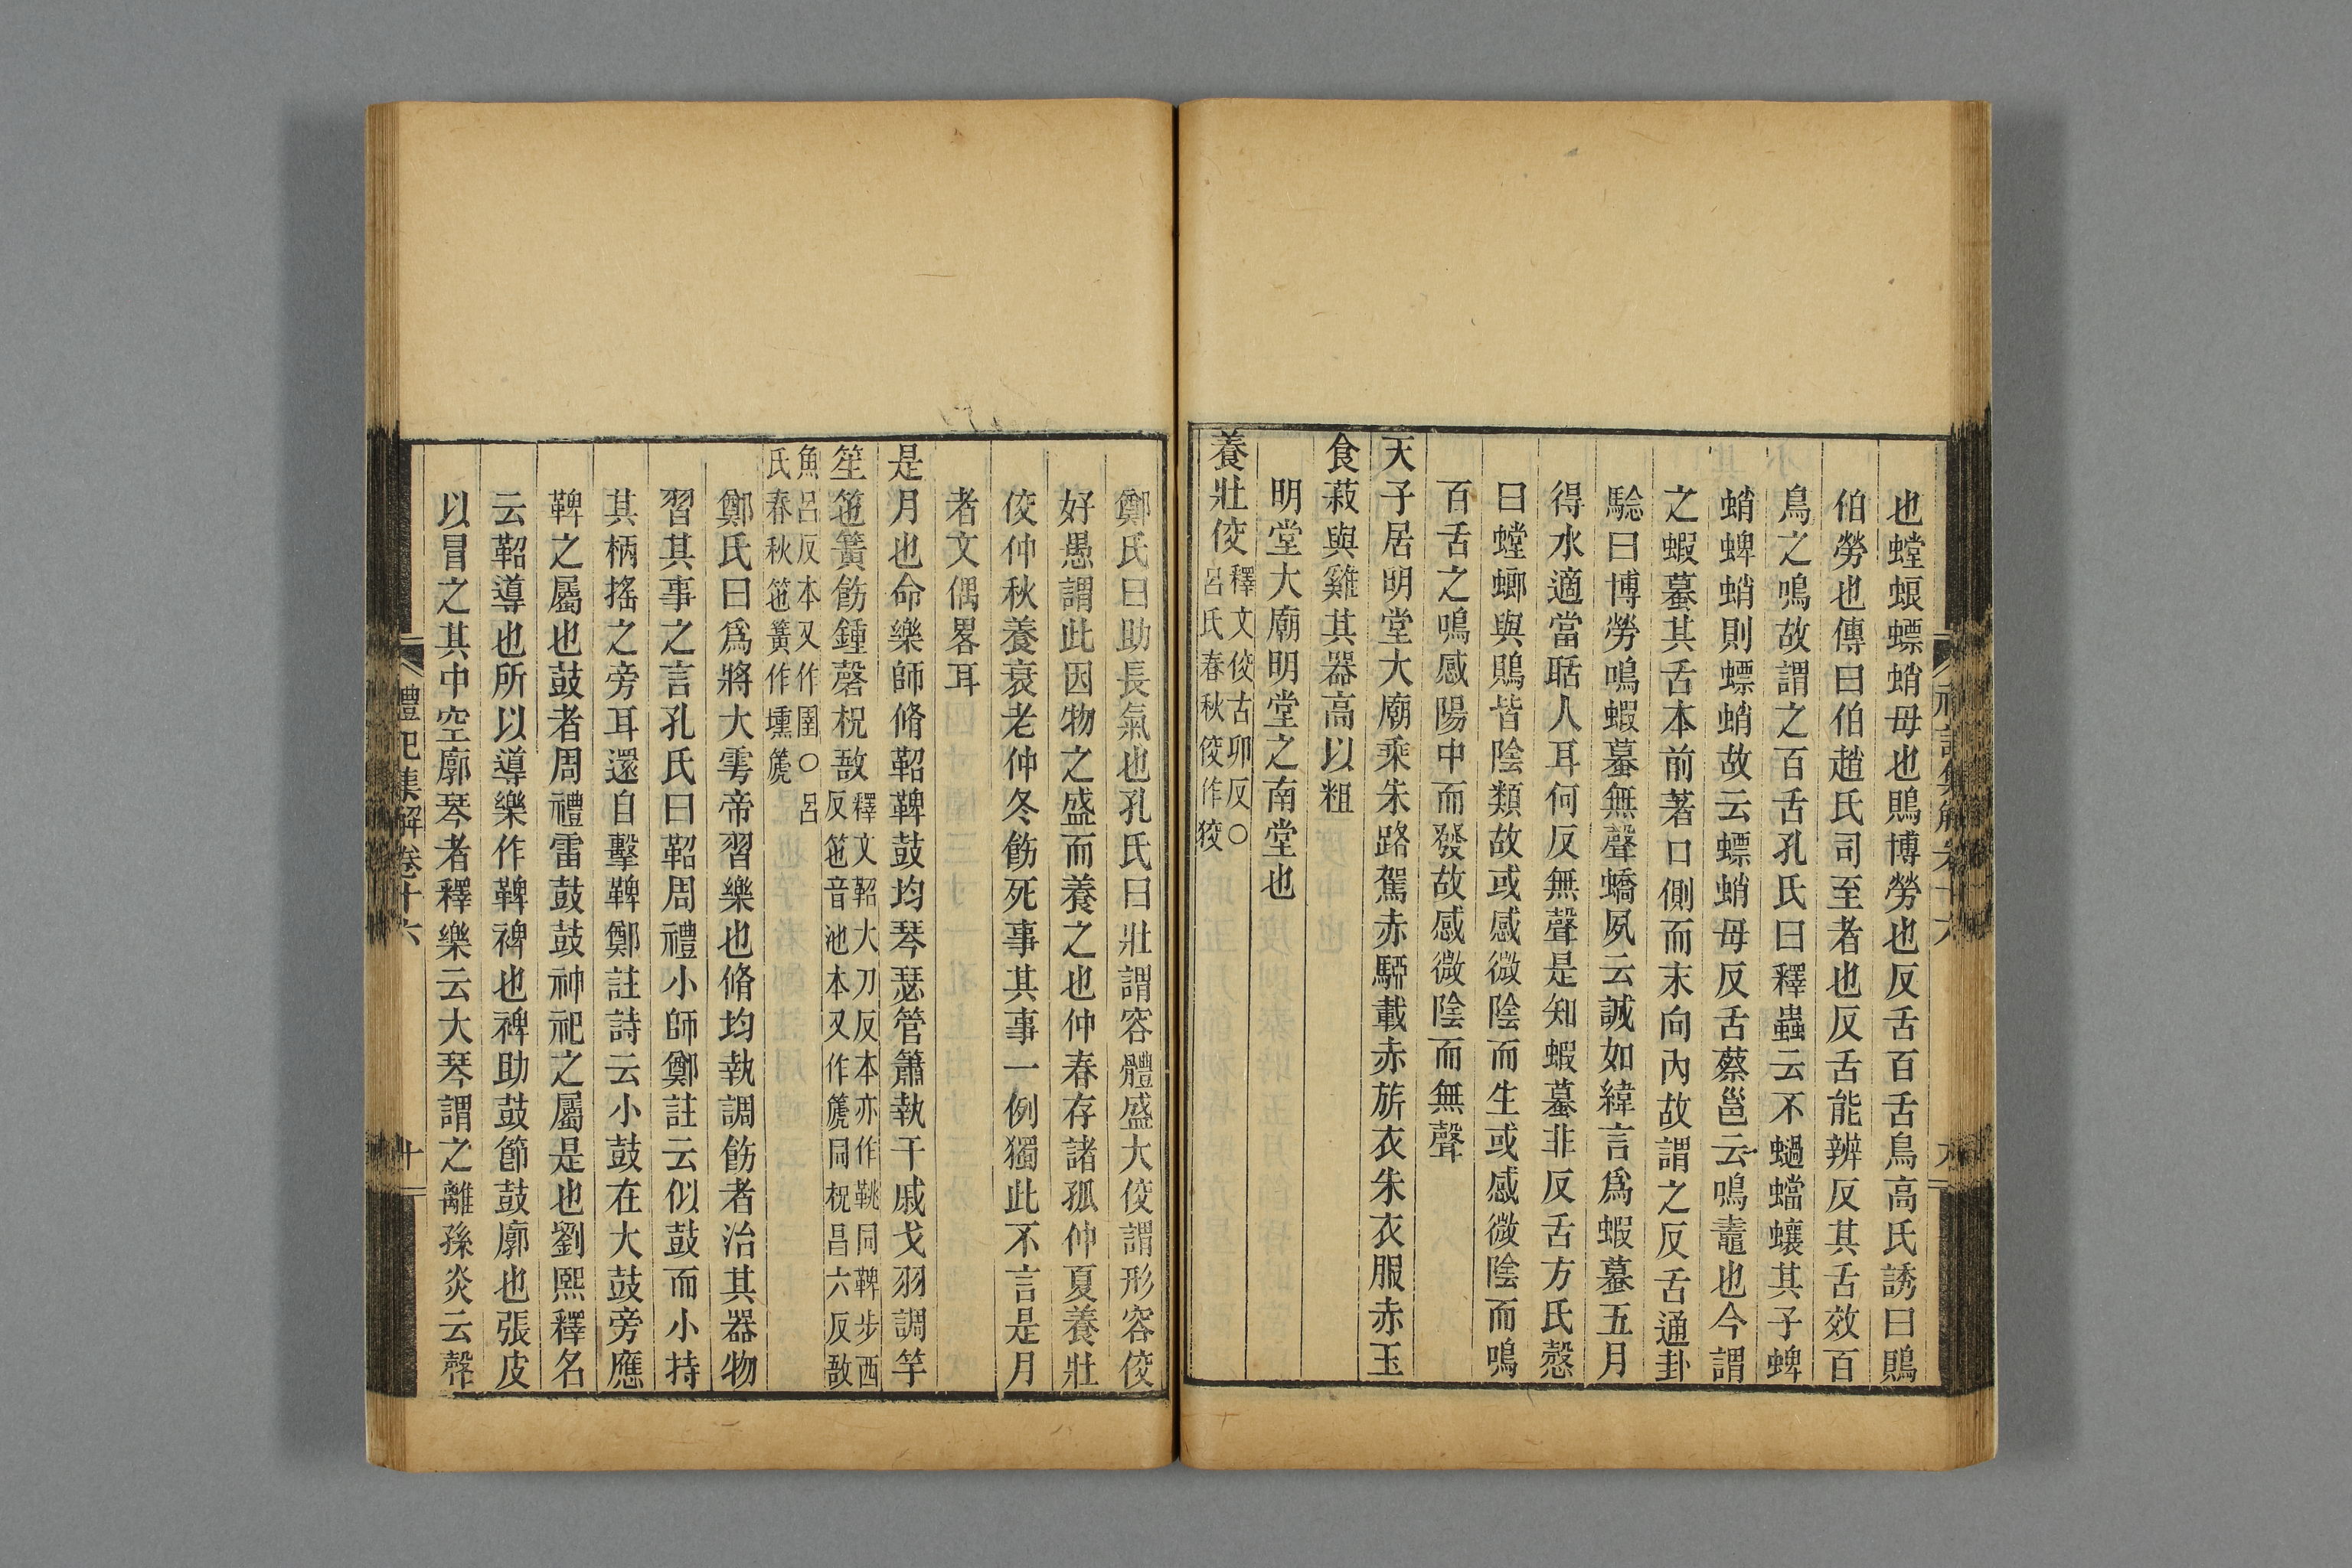 也螳蜋螵蛸母也鵙博勞也反舌百舌鳥高氏誘曰鵙
伯勞也傳曰伯趙氏司至者也反舌能辨反其舌效百
鳥之鳴故謂之百舌孔氏曰釋蟲云不蜩蟷蠰其子蜱
蛸蜱蛸則螵蛸故云螵蛸母反舌蔡邕云鳴鼃也今謂
之蝦蟇其舌本前著口側而末向內故謂之反舌通卦
驗曰博勞鳴蝦蟇無聲蟜夙云誠如緯言爲蝦蟇五月
得水適當聒人耳何反無聲是知蝦蟇非反舌方氏慤
曰螳螂與鵙皆陰類故或感微陰而生或感微陰而鳴
百舌之鳴感陽中而發故感微陰而無聲
天子居明堂大廟乘朱路駕赤騂載赤旂衣朱衣服赤玉
食菽與雞其器高以粗
明堂大廟明堂之南堂也
養壯佼釋文佼古卯反○呂氏春秋佼作狡
鄭氏曰助長氣也孔氏曰壯謂容體盛大佼謂形容佼
好愚謂此因物之盛而養之也仲春存諸孤仲夏養壯
佼仲秋養衰老仲冬飭死事其事一例獨此不言是月
者文偶畧耳
是月也命樂師脩鞀鞞鼓均琴瑟管簫執干戚戈羽調竽
笙竾簧飭鍾磬柷敔釋文鞀大刀反本亦作鞉同鞞步西反竾音池本又作篪同柷昌六反敔
魚呂反本又作圉○呂氏春秋竾簧作壎篪
鄭氏曰爲將大雩帝習樂也脩均執調飭者治其器物
習其事之言孔氏曰鞀周禮小師鄭註云似鼓而小持
其柄搖之旁耳還自擊鞞鄭註詩云小鼓在大鼓旁應
鞞之屬也鼓者周禮雷鼓鼓神祀之屬是也劉熙釋名
云鞀導也所以導樂作鞞裨也裨助鼓節鼓廓也張皮
以冒之其中空廓琴者釋樂云大琴謂之離孫炎云聲
禮記集解卷十六
十